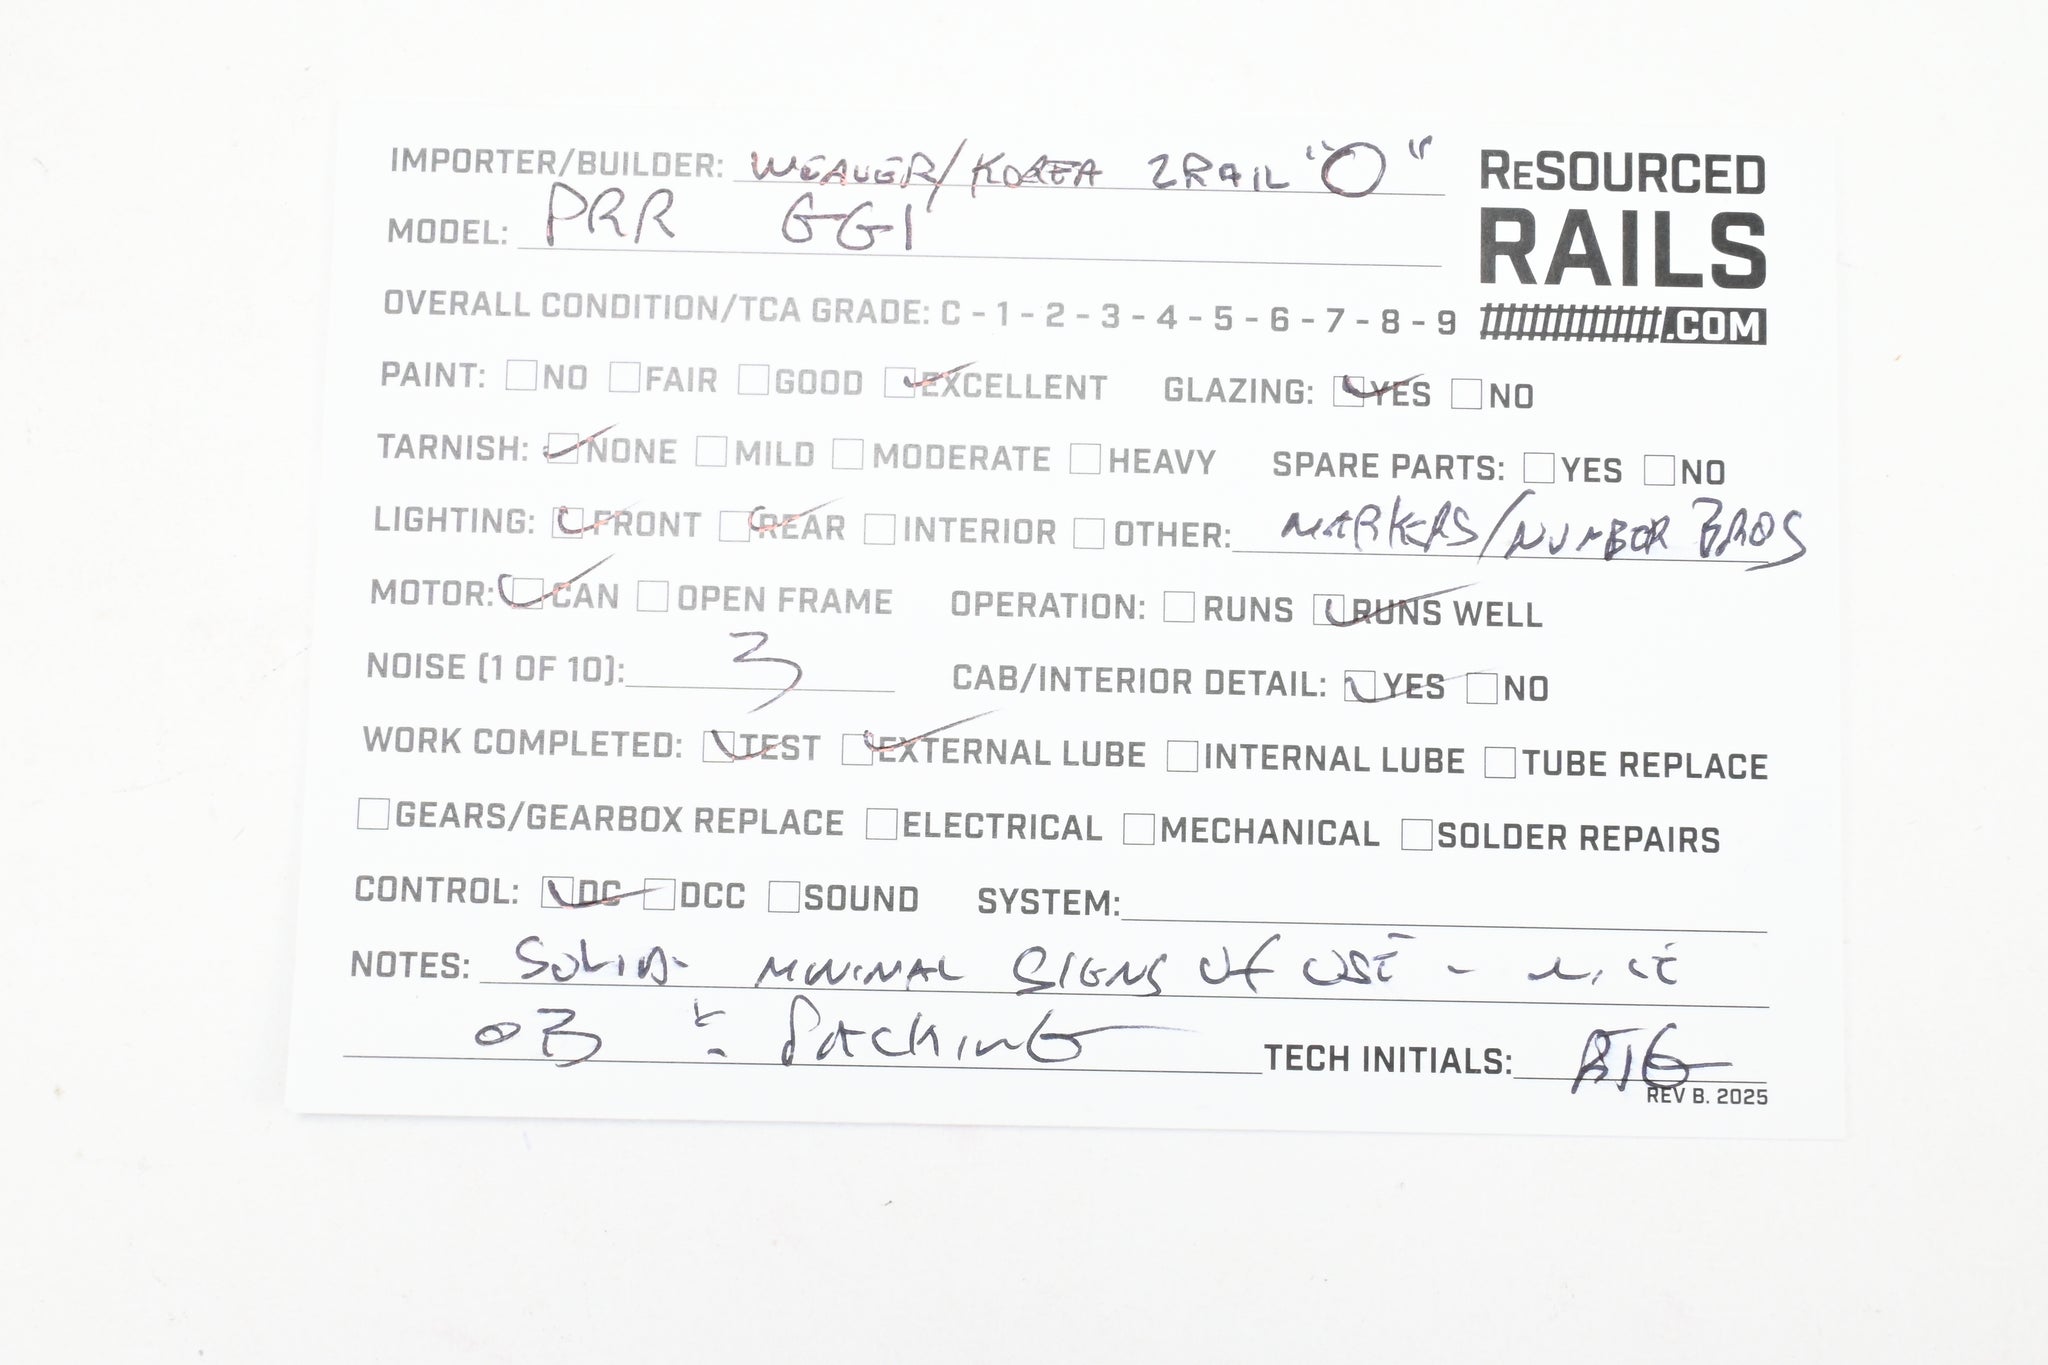 IMPORTER/BUILDER: WEAVER/KOREA 2RAIL "O"
RESOURCED
RAILS
.COM
MODEL: PRR GG1
OVERALL CONDITION/TCA GRADE: C - 1 - 2 - 3 - 4 - 5 - 6 - 7 - 8 - 9
PAINT: NO FAIR GOOD EXCELLENT GLAZING: YES NO
TARNISH: NONE MILD MODERATE HEAVY SPARE PARTS: YES NO
LIGHTING: FRONT REAR INTERIOR OTHER: MARKERS/NUMBER
MOTOR: CAN OPEN FRAME OPERATION: RUNS RUNS WELL
NOISE (1 OF 10): 3 CAB/INTERIOR DETAIL: YES NO
WORK COMPLETED: TEST EXTERNAL LUBE INTERNAL LUBE TUBE REPLACE
GEARS/GEARBOX REPLACE ELECTRICAL MECHANICAL SOLDER REPAIRS
CONTROL: DC DCC SOUND SYSTEM:
NOTES: SOLID - MINIMAL SIGNS OF USE - NICE
OB & PACKING TECH INITIALS:
REV B. 2025